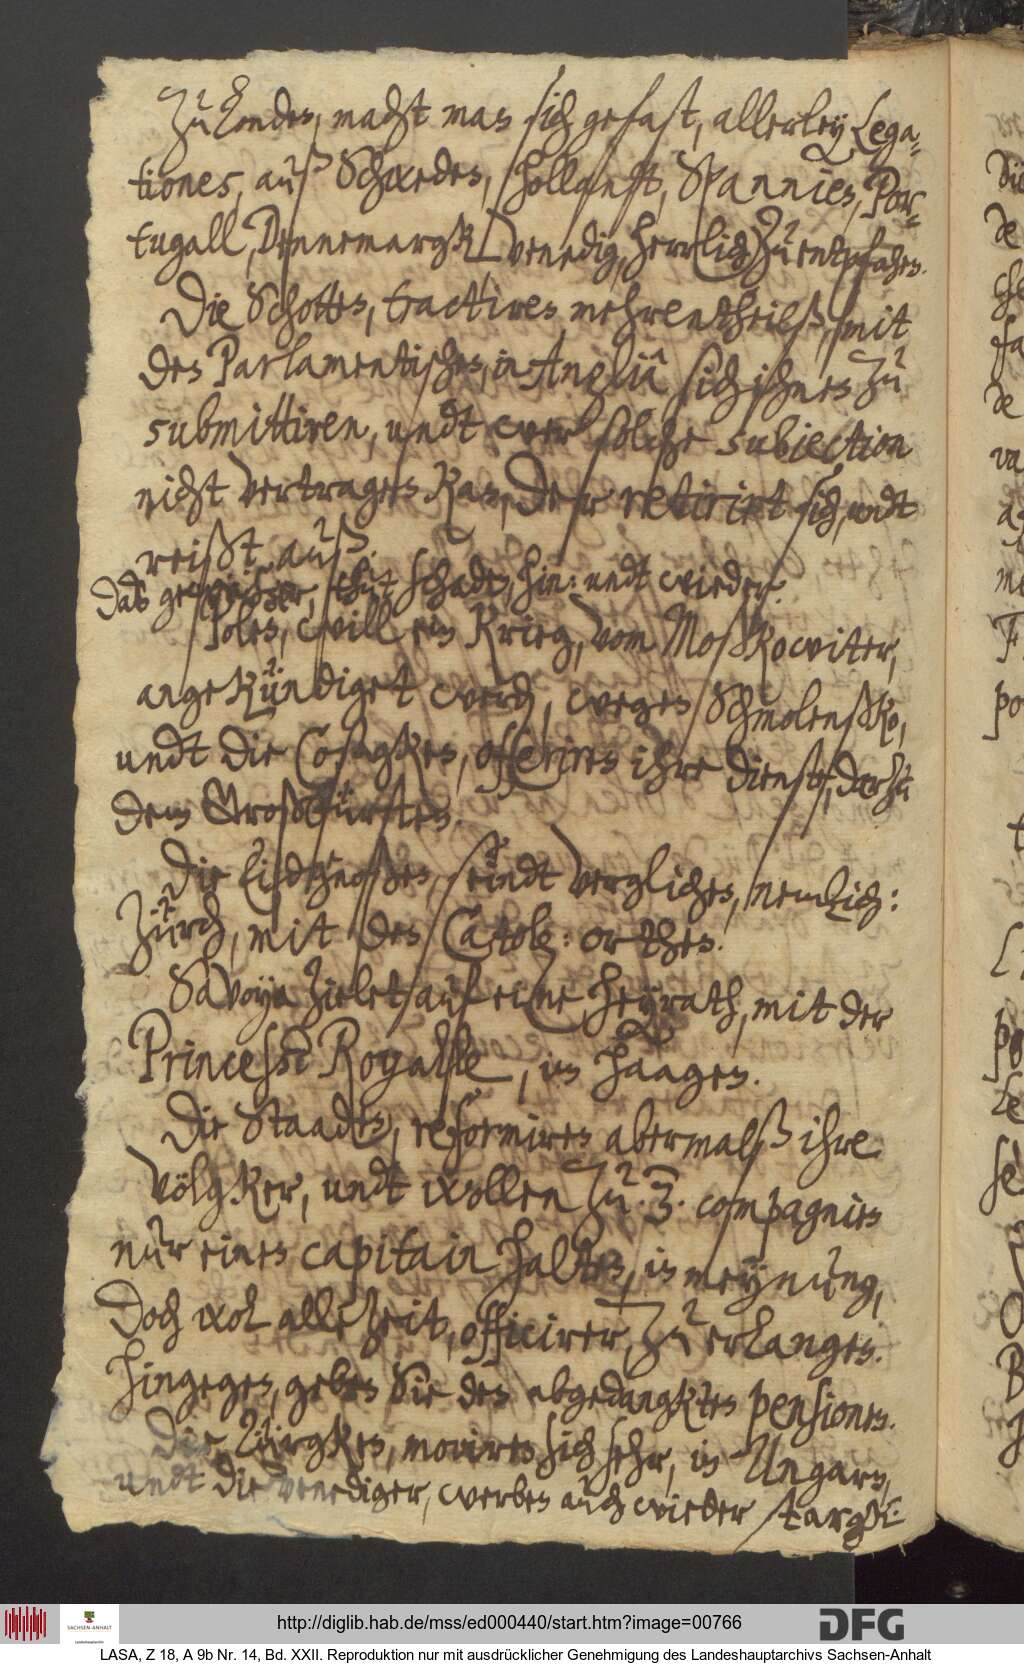 Zu Londen, macht man sich gefast, allerley Lega-
tiones, auß Schweden, Hollandt, Spannien, Por-
tugall, Dennemargk, Venedig, herrlich zu entpfahen.
Die Schotten, tractiren mehrentheilß, mit
den Parlamentischen, in Angliâ sich ihnen zu
submittiren, undt wer solche subjection
nicht vertragen kan, der retirirt sich, undt
reißt auß.
Das gewäßer, thut schaden, hin: undt wieder.
Polen, will ein Krieg, vom Moßkowiter,
angekündiget werden, wegen Schmolenßko,
undt die Cosagken, offeriren ihre dienste, darzu
dem Großfürsten.
Die Eidtgnoßen, seindt verglichen, nemlich:
Zürch, mit den Catole: orthen.
Savoya zielet auf eine heyrath, mit der
Princesse Royalle, in Haagen.
Die Staadten, reformiren abermalß ihre
Völgker, undt wollen zu .3. compagnien
nur einen capitain halten, in meynung,
doch wol allezeit, officirer, zu erlangen.
Hingegen, geben Sie den abgedangkten pensionen.
Die Türgken, moviren sich sehr, in Ungarn,
undt die Venediger, werben auch wieder stargk.
http://diglib.hab.de/mss/ed000440/start.htm?image=00766
SACHSEN-ANHALT
DFG
LASA, Z 18, A 9b Nr. 14, Bd. XXII. Reproduktion nur mit ausdrücklicher Genehmigung des Landeshauptarchivs Sachsen-Anhalt